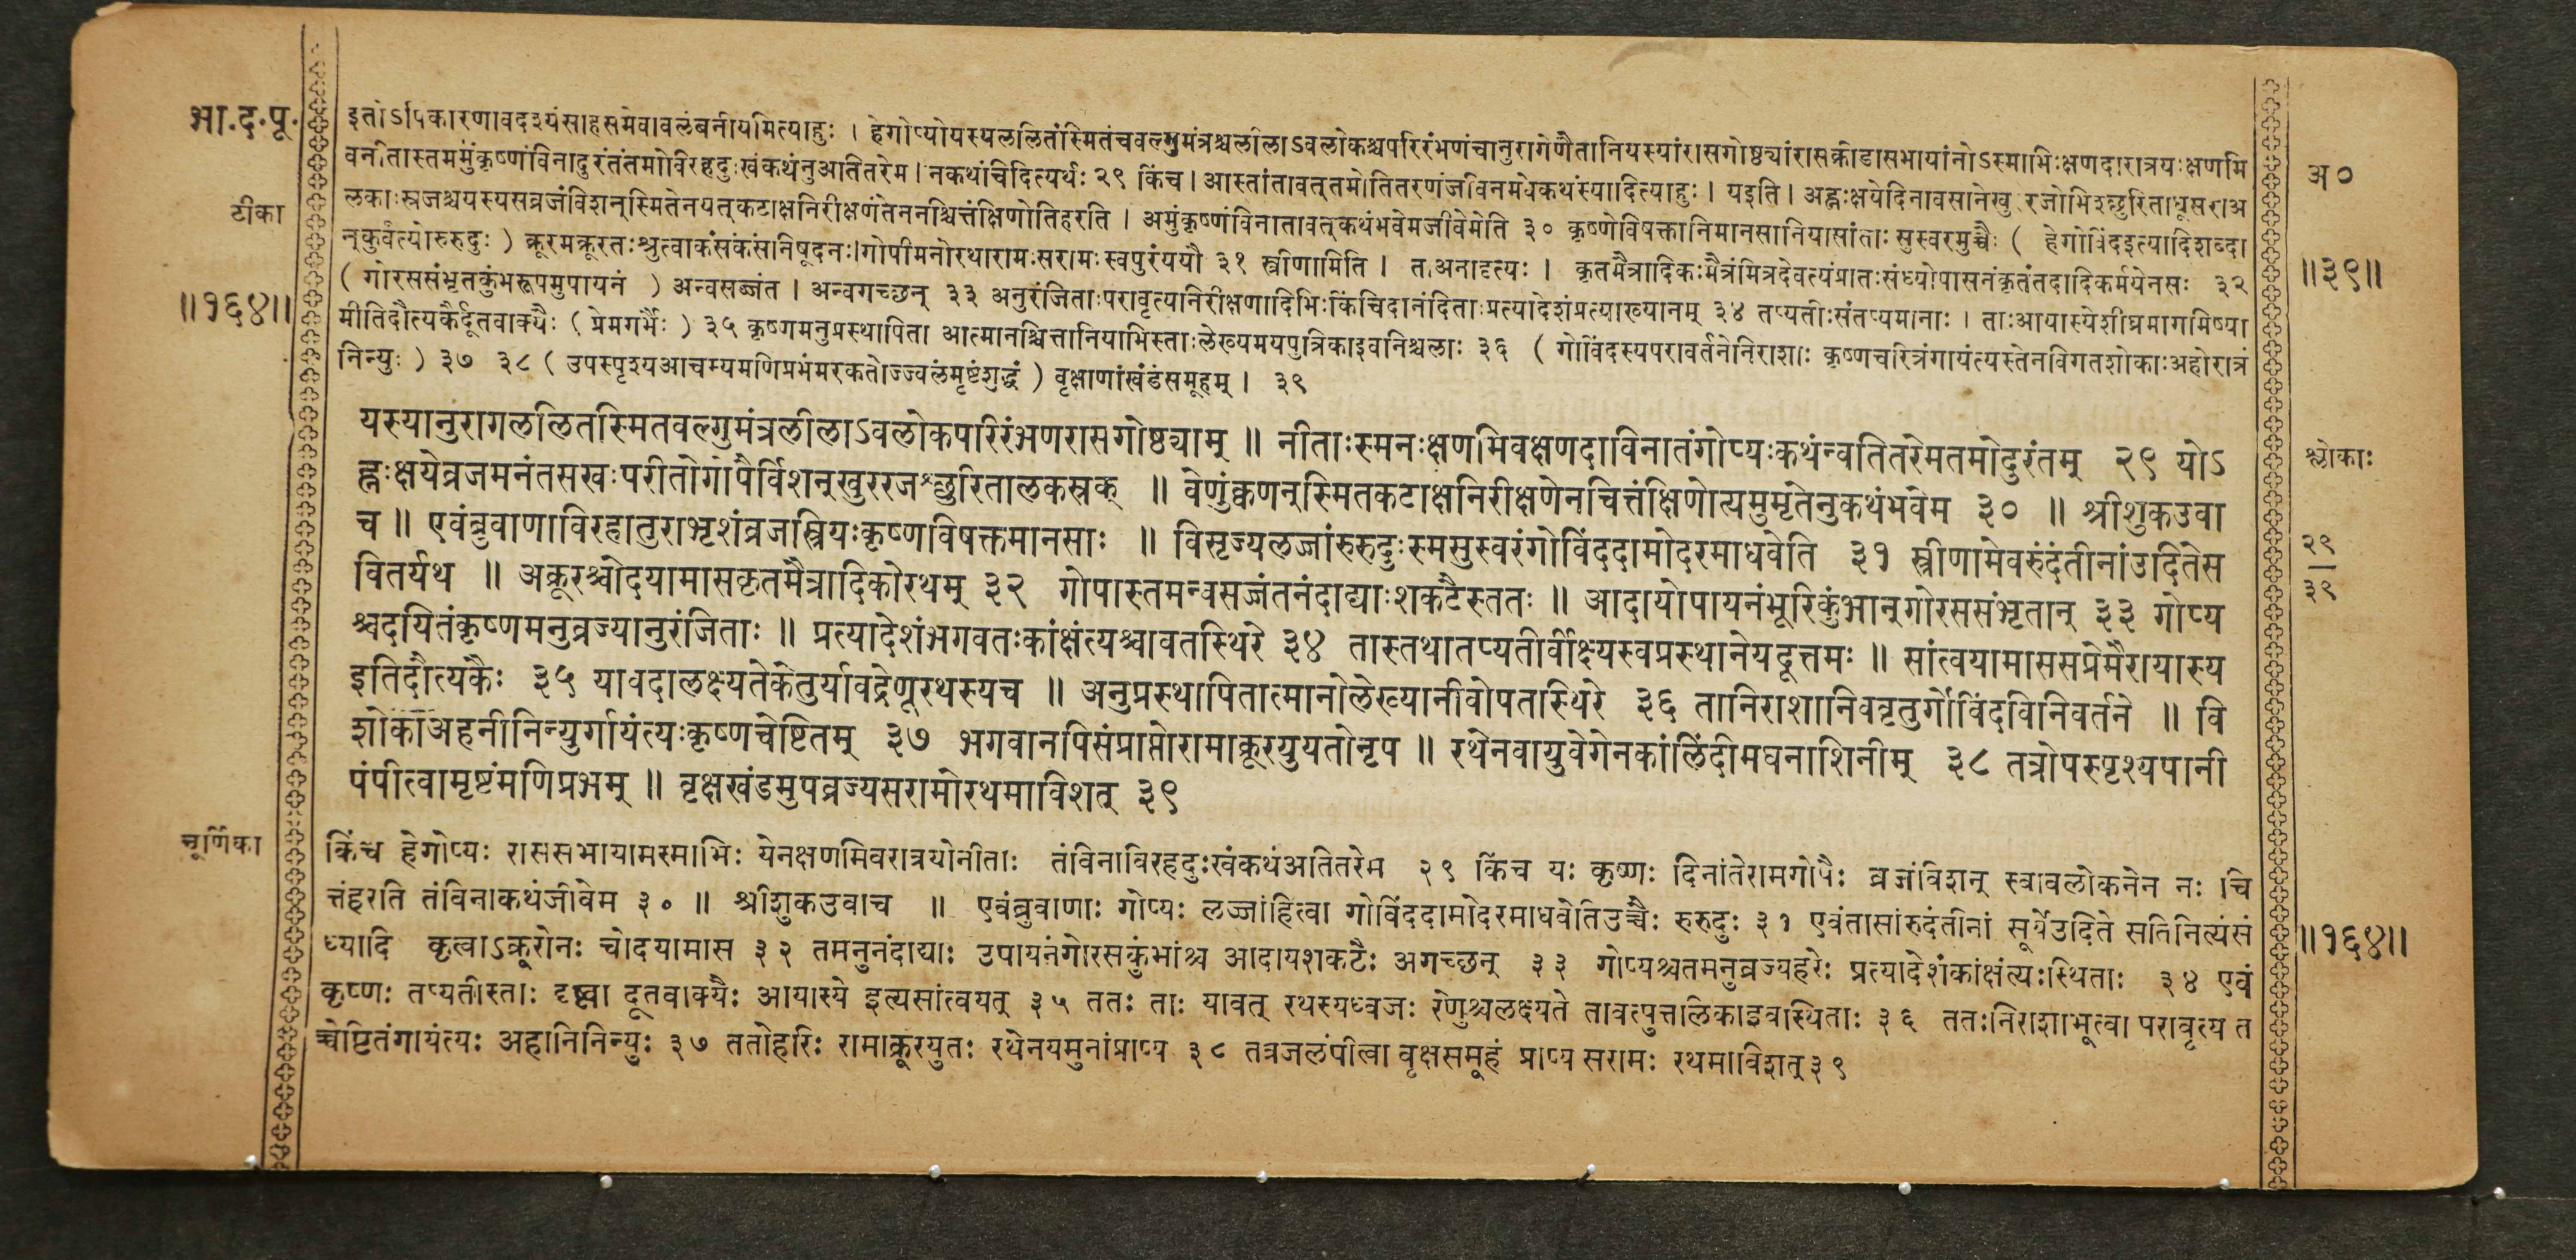 भा.द.पू.
टीका
॥१६४॥
इतोऽपिकारणादवश्यंसाहसमेवावलंबनीयमित्याहुः । हेगोप्योयस्यललितंस्मितंचवल्गुमंत्रश्चलीलाऽवलोकश्चपरिरंभणंचानुरागेणैतानियस्यांरासगोष्ठ्यांरासक्रीडासभायांनोऽस्माभिःक्षणदारात्रयःक्षणमि
वनीतास्तममुंकृष्णंविनादुरंतंतमोविरहदुःखंकथंनुअतितरेम । नकथंचिदित्यर्थः २९ किंच । आस्तांतावत्तमोतितरणंजीवनमेवकथंस्यादित्याहुः । यइति । अह्नःक्षयेदिनावसानेखुररजोभिश्छुरिताधूसराअ
लकाःस्रजश्चयस्यसव्रजंविशन्स्मितेनयत्कटाक्षनिरीक्षणंतेननश्चित्तंक्षिणोतिहरति । अमुंकृष्णंविनातावत्कथंभवेमजीवेमेति ३० कृष्णेविषक्तानिमानसानियासांताः सुस्वरमुच्चैः ( हेगोविंदइत्यादिशब्दा
न्कुर्वंत्योरुरुदुः ) क्रूरमक्रूरतःश्रुत्वाकंसकंसंनिषूदनः।गोपीमनोरथारामःसरामःस्वपुरंययौ ३१ स्त्रीणामिति । ताःअनादृत्यः । कृतमैत्रादिकःमैत्रंमित्रदेवत्यंप्रातःसंध्योपासनंकृतंतदादिकर्मयेनसः ३२
( गोरससंभृतकुंभरूपमुपायनं ) अन्वसज्जंत । अन्वगच्छन् ३३ अनुरंजिताःपरावृत्यानिरीक्षणादिभिःकिंचिदानंदिताःप्रत्यादेशंप्रत्याख्यानम् ३४ तप्यतीःसंतप्यमानाः । ताःआयास्येशीघ्रमागमिष्या
मीतिदौत्यकैर्दूतवाक्यैः ( प्रेमगर्भैः ) ३५ कृष्णमनुप्रस्थापिता आत्मानश्चित्तानियाभिस्ताःलेख्यमयपुत्रिकाइवनिश्चलाः ३६ ( गोविंदस्यपरावर्तनेनिराशाः कृष्णचरित्रंगायंत्यस्तेनविगतशोकाःअहोरात्रं
निन्युः ) ३७ ३८ ( उपस्पृश्यआचम्यमणिप्रभंमरकतोज्ज्वलंमृष्टंशुद्धं ) वृक्षाणांखंडंसमूहम् । ३९
यस्यानुरागललितस्मितवल्गुमंत्रलीलाऽवलोकपरिरंभणरासगोष्ठ्याम् ॥ नीताःस्मनःक्षणमिवक्षणदाविनातंगोप्यःकथंन्वतितरेमतमोदुरंतम् २९ योऽ
ह्नःक्षयेव्रजमनंतसखःपरीतोगोपैर्विशन्खुररजश्छुरितालकस्रक् ॥ वेणुंक्वणन्स्मितकटाक्षनिरीक्षणेनचित्तंक्षिणोत्यमुमृतेनुकथंभवेम ३० ॥ श्रीशुकउवा
च ॥ एवंब्रुवाणाविरहातुराभृशंव्रजस्त्रियःकृष्णविषक्तमानसाः ॥ विसृज्यलज्जांरुरुदुःस्मसुस्वरंगोविंददामोदरमाधवेति ३१ स्त्रीणामेवरुंदंतीनांउदितेस
वितर्यथ ॥ अक्रूरश्चोदयामासकृतमैत्रादिकोरथम् ३२ गोपास्तमन्वसज्जंतनंदाद्याःशकटैस्ततः ॥ आदायोपायनंभूरिकुंभान्गोरससंभृतान् ३३ गोप्य
श्चदयितंकृष्णमनुव्रज्यानुरंजिताः ॥ प्रत्यादेशंभगवतःकांक्षंत्यश्चावतस्थिरे ३४ तास्तथातप्यतीर्वीक्ष्यस्वप्रस्थानेयदूत्तमः ॥ सांत्वयामाससप्रेमैरायास्य
इतिदौत्यकैः ३५ यावदालक्ष्यतेकेतुर्यावद्रेणूरथस्यच ॥ अनुप्रस्थापितात्मानोलेख्यानीवोपतस्थिरे ३६ तानिराशानिववृतुर्गोविंदविनिवर्तने ॥ वि
शोकाअहनीनिन्युर्गायंत्यःकृष्णचेष्टितम् ३७ भगवानपिसंप्राप्तोरामाक्रूरयुयतोनृप ॥ रथेनवायुवेगेनकांलिंदीमघनाशिनीम् ३८ तत्रोपस्पृश्यपानी
पंपीत्वामृष्टंमणिप्रभम् ॥ वृक्षखंडमुपव्रज्यसरामोरथमाविशत् ३९
चूर्णिका
किंच हेगोप्यः राससभायामस्माभिः येनक्षणमिवरात्रयोनीताः तंविनाविरहदुःखंकथंअतितरेम २९ किंच यः कृष्णः दिनांतेरामगोपैः व्रजंविशन् स्वावलोकनेन नः चि
त्तंहरति तंविनाकथंजीवेम ३० ॥ श्रीशुकउवाच ॥ एवंब्रुवाणाः गोप्यः लज्जांहित्वा गोविंददामोदरमाधवेतिउच्चैः रुरुदुः ३१ एवंतासांरुदंतीनां सूर्येउदिते सतिनित्यंसं
ध्यादि कृत्वाऽक्रूरोनः चोदयामास ३२ तमनुनंदाद्याः उपायनंगोरसकुंभांश्च आदायशकटैः अगच्छन् ३३ गोप्यश्चतमनुव्रज्यहरेः प्रत्यादेशंकांक्षंत्यःस्थिताः ३४ एवं
कृष्णः तप्यतीस्ताः दृष्ट्वा दूतवाक्यैः आयास्ये इत्यसांत्वयत् ३५ ततः ताः यावत् रथस्यध्वजः रेणुश्चलक्ष्यते तावत्पुत्तलिकाइवस्थिताः ३६ ततःनिराशाभूत्वा परावृत्य त
च्चेष्टितंगायंत्यः अहानिनिन्युः ३७ ततोहरिः रामाक्रूरयुतः रथेनयमुनांप्राप्य ३८ तत्रजलंपीत्वा वृक्षसमूहं प्राप्य सरामः रथमाविशत् ३९
अ०
॥३९॥
श्लोकाः
२९
३९
॥१६४॥